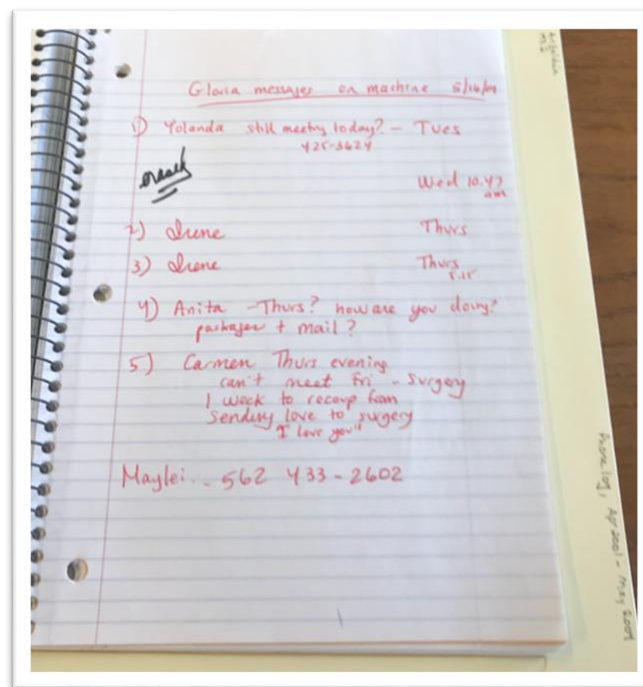 Gloria messages on machine 5/16/04
1) Yolanda still meeting today? - Tues
425-3624
Wed 10.47
am
2) Irene Thurs
3) Irene Thurs
5.15
4) Anita - Thurs? how are you doing?
packages + mail?
5) Carmen Thurs evening
can't meet Fri - surgery
1 week to recoup from
sending love to surgery
"I love you"
Maylei - 562 433-2602
Phone log, Apr 2001 - May 2004